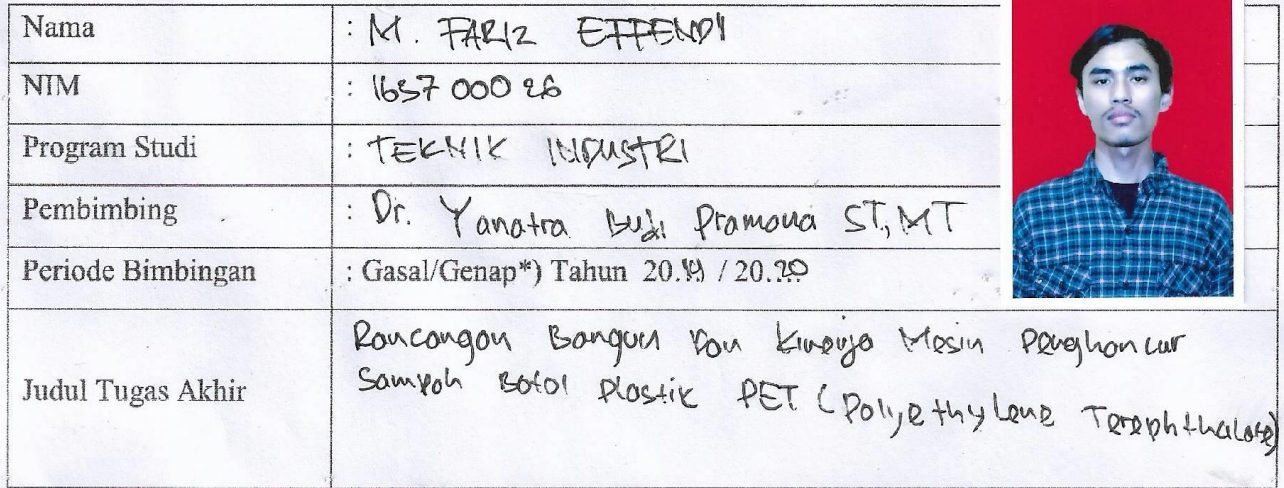 Nama : M. FARIZ EFFENDI
NIM : 165700026
Program Studi : TEKNIK INDUSTRI
Pembimbing : Dr. Yanatra Budi Pramona ST, MT
Periode Bimbingan : Gasal/Genap*) Tahun 20.19 / 20.20
Judul Tugas Akhir : Rancangan Bangun Dan Kinerja Mesin Penghancur
Sampah Botol Plastik PET (Polyethylene Terephthalate)